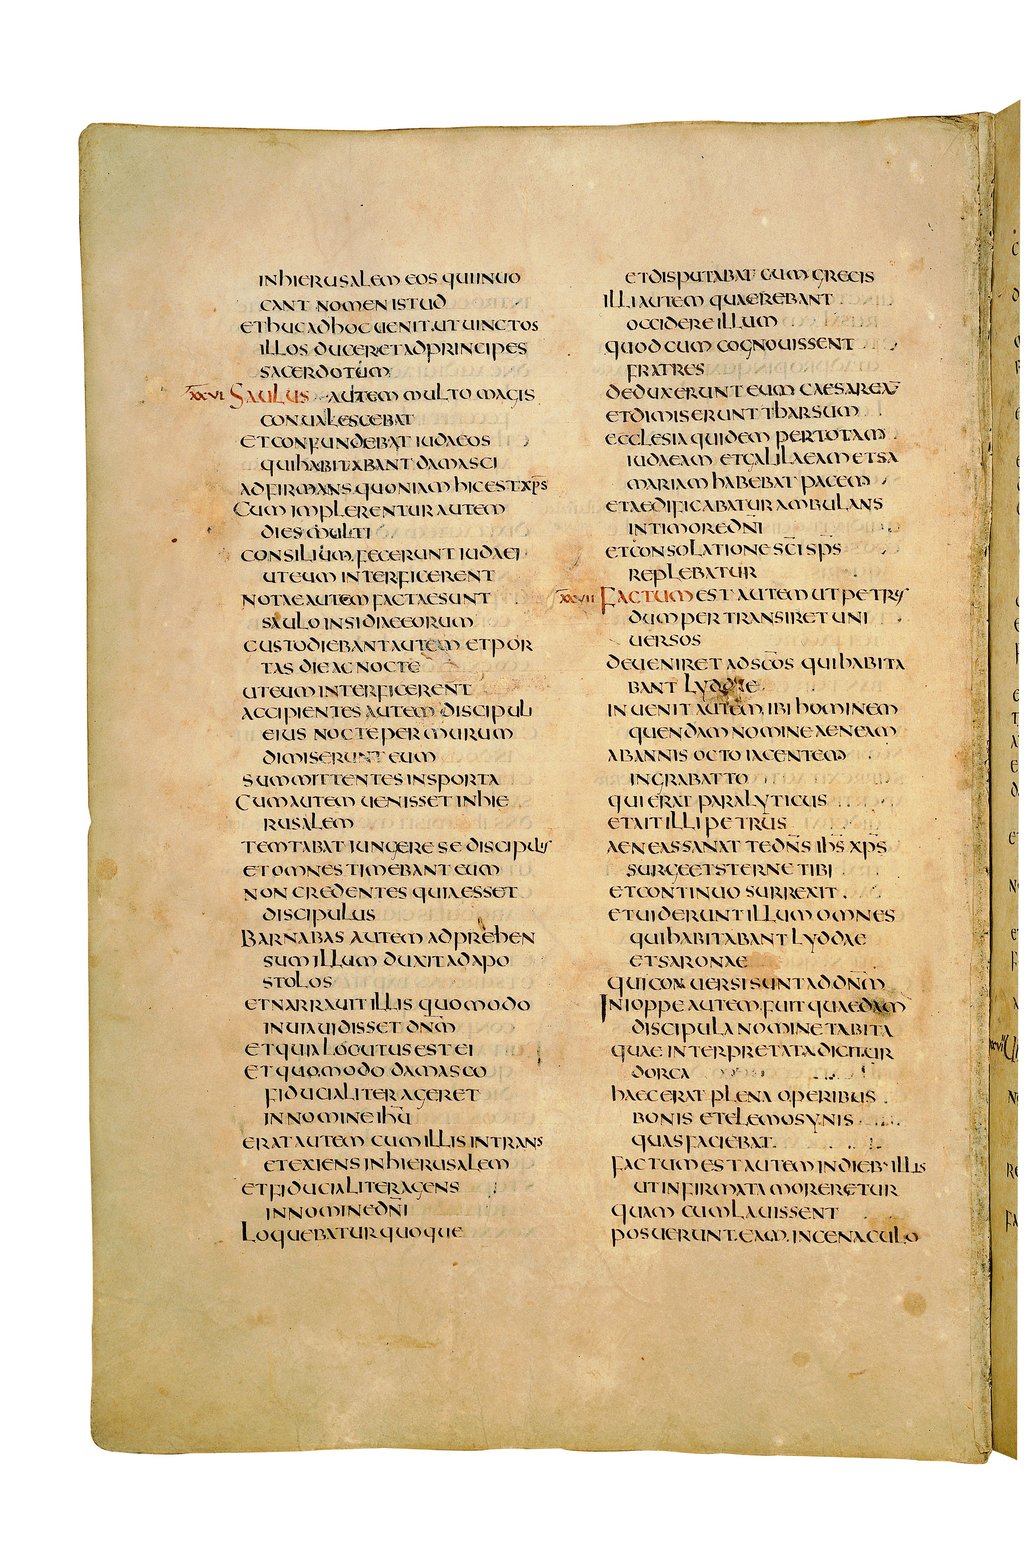 INHIERUSALEM EOS QUIINUO
CANT NOMEN ISTUD
ETHUCADHOC UENIT UT UINCTOS
ILLOS DUCERET ADPRINCIPES
SACERDOTUM
XXVI SAULUS AUTEM MULTO MAGIS
CONUALESCEBAT
ET CONFUNDEBAT IUDAEOS
QUIHABITABANT DAMASCI
ADFIRMANS QUONIAM HIC EST XP̄S
CUM IMPLERENTUR AUTEM
DIES MULTI
CONSILIUM FECERUNT IUDAEI
UTEUM INTERFICERENT
NOTAE AUTEM FACTAE SUNT
SAULO INSIDIAE EORUM
CUSTODIEBANT AUTEM ET POR
TAS DIE AC NOCTE
UTEUM INTERFICERENT
ACCIPIENTES AUTEM DISCIPULI
EIUS NOCTE PER MURUM
DIMISERUNT EUM
SUMMITTENTES INSPORTA
CUM AUTEM UENISSET INHIE
RUSALEM
TEMTABAT IUNGERE SE DISCIPULIS
ET OMNES TIMEBANT EUM
NON CREDENTES QUIA ESSET
DISCIPULUS
BARNABAS AUTEM ADPREHEN
SUM ILLUM DUXIT AD APO
STOLOS
ET NARRAUIT ILLIS QUOMODO
IN UIA UIDISSET DN̄M
ET QUIA LOCUTUS EST EI
ET QUOMODO DAMASCO
FIDUCIALITER AGERET
IN NOMINE IHŪ
ERAT AUTEM CUM ILLIS INTRANS
ET EXIENS INHIERUSALEM
ET FIDUCIALITER AGENS
IN NOMINE DN̄I
LOQUEBATUR QUOQUE
ET DISPUTABAT CUM GRECIS
ILLI AUTEM QUAEREBANT
OCCIDERE ILLUM
QUOD CUM COGNOUISSENT
FRATRES
DEDUXERUNT EUM CAESAREĀ
ET DIMISERUNT THARSUM
ECCLESIA QUIDEM PER TOTAM
IUDAEAM ET GALILAEAM ET SA
MARIAM HABEBAT PACEM
ET AEDIFICABATUR AMBULANS
IN TIMORE DN̄I
ET CONSOLATIONE SC̄I SP̄S
REPLEBATUR
XXVII FACTUM EST AUTEM UT PETRUS
DUM PERTRANSIRET UNI
UERSOS
DEUENIRET AD SC̄OS QUI HABITA
BANT LYDDAE
INUENIT AUTEM IBI HOMINEM
QUENDAM NOMINE AENEAM
AB ANNIS OCTO IACENTEM
IN GRABATTO
QUI ERAT PARALYTICUS
ET AIT ILLI PETRUS
AENEAS SANAT TE DN̄S IH̄S XP̄S
SURGE ET STERNE TIBI
ET CONTINUO SURREXIT
ET UIDERUNT ILLUM OMNES
QUI HABITABANT LYDDAE
ET SARONAE
QUI CONUERSI SUNT AD DN̄M
IN IOPPE AUTEM FUIT QUAEDAM
DISCIPULA NOMINE TABITA
QUAE INTERPRETATA DICITUR
DORCA
HAEC ERAT PLENA OPERIBUS
BONIS ET ELEMOSYNIS
QUAS FACIEBAT
FACTUM EST AUTEM IN DIEB· ILLIS
UT INFIRMATA MORERETUR
QUAM CUM LAUISSENT
POSUERUNT EAM IN CENACULO